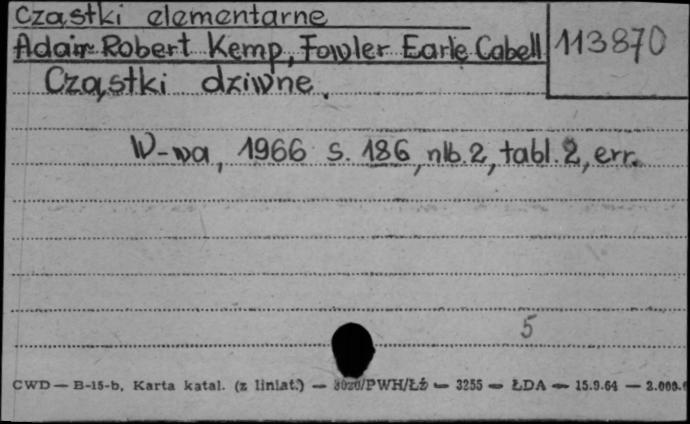 Cząstki elementarne
Adair Robert Kemp, Fowler Earle Cabell
113870
Cząstki dziwne.
W-wa, 1966 s. 186, nlb. 2, tabl. 2, err.
5
CWD — B-15-b, Karta katal. (z liniat.) — /PWH/Łź — 3255 — ŁDA — 15.9.64 — 2.000.